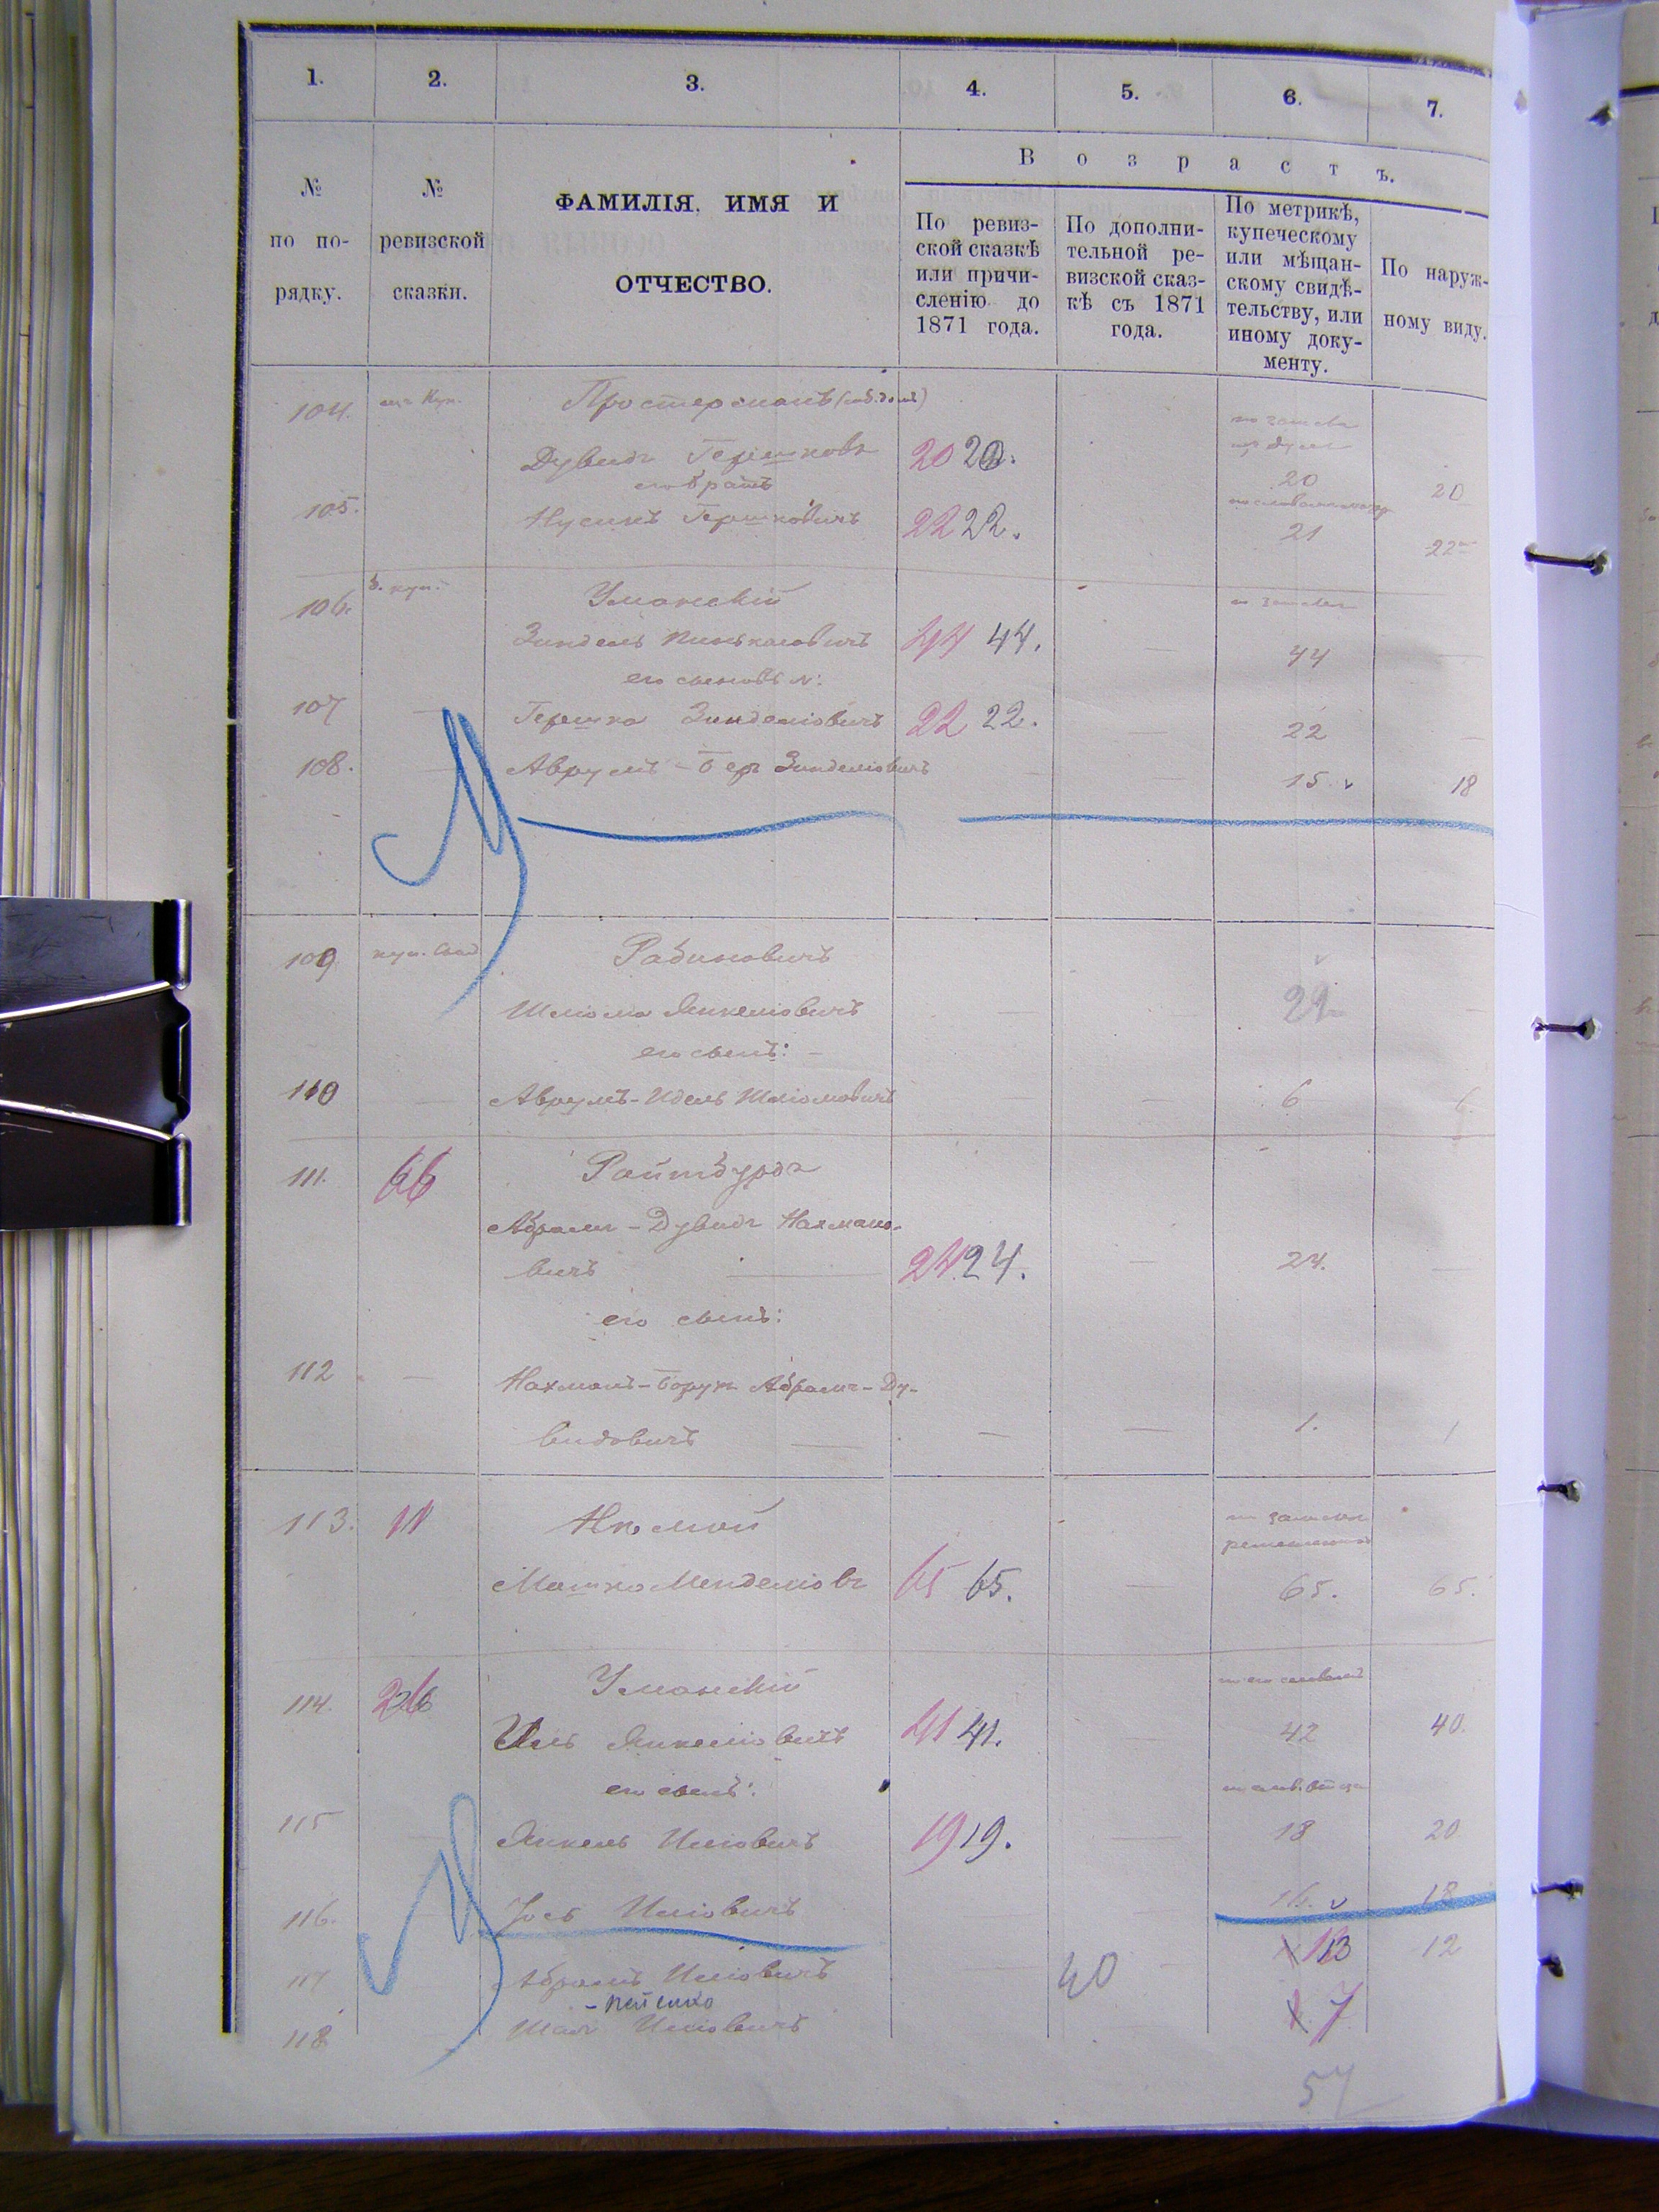 1. 2. 3. 4. 5. 6. 7.
№ по по-рядку.
№ ревизской сказки.
ФАМИЛІЯ, ИМЯ И
ОТЧЕСТВО.
Возрастъ.
По ревиз-
ской сказкѣ
или причи-
сленію до
1871 года.
По дополни-
тельной ре-
визской сказ-
кѣ съ 1871
года.
По метрикѣ,
купеческому
или мѣщан-
скому свидѣ-
тельству, или
иному доку-
менту.
По наруж-
ному виду.
104. Простерманъ
Дувидъ Гершковъ 20 20. 20 20
его братъ
105. Нусинъ Гершковичъ 22 22. 21 22
106. Уманскій
Зиндель Пинькасовичъ 44 44. — 44 —
его сыновья:
107 — Гершко Зинделіовичъ 22 22. — 22 —
108. — Аврумъ-Беръ Зинделіовичъ — — 15 v 18
109 Рабиновичъ
Шліома Янкеліовичъ — — 29 —
его сынъ:
110 — Аврумъ-Идель Шліомовичъ — — 6 6
111. 66 Райтбурдъ
Абрамъ-Дувидъ Нахмано-
вичъ — 24 24. — 24. —
его сынъ:
112 — Нахманъ-Борухъ Абрамъ-Ду-
видовичъ — — — 1. 1
113. 11 Нѣмой
Мошко Менделіовъ 65 65. — 65. 65.
114. 26 Уманскій
Иль Янкеліовичъ 41 41. 42 40.
его сынъ:
115 Янкель Иліовичъ 19 19. — 18 20
116. Іось Иліовичъ — 16. v 18
117 Абрамъ Иліовичъ — 40 13 12
118 Шая Иліовичъ 7
57